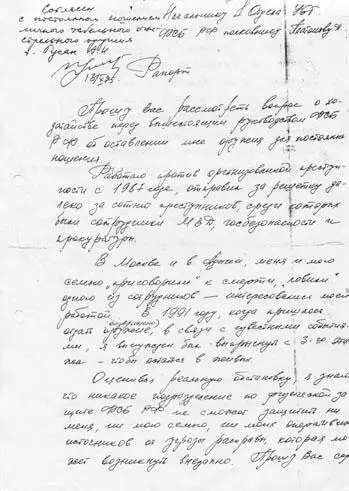 Согласен
с постоянным ношением Начальнику 1 Отдела УБТ
личного табельного
ФСБ РФ полковнику Платонову
стрелкового оружия
т. Гусак А.И.
Рапорт
Прошу Вас рассмотреть вопрос о хо
датайстве перед вышестоящим руководством ФСБ
РФ об оставлении мне оружия для постоянного
ношения.
Работаю против организованной преступ
ности с 1987 года, отправил за решетку да
леко за сотню преступников, среди которых
были сотрудники МВД, госбезопасности и
прокуратуры.
В Москве и в меня и мою
семью "приговорили" к смерти, "ловили"
одного из сотрудников – интересовались моей
работой. В 1991 году, когда пришлось
сдать оружие, в связи с известными событи
ями, я вынужден был выпрыгнуть с 3-го эта
жа – чтобы остаться в живых.
Оценивая реальную обстановку, я знаю
что никакое подразделение по физической за
щите ФСБ РФ не сможет защитить ни
меня, ни мою семью, ни моих оперативных
источников от угрозы расправы, которая мо
жет возникнуть внезапно. Прошу Вас